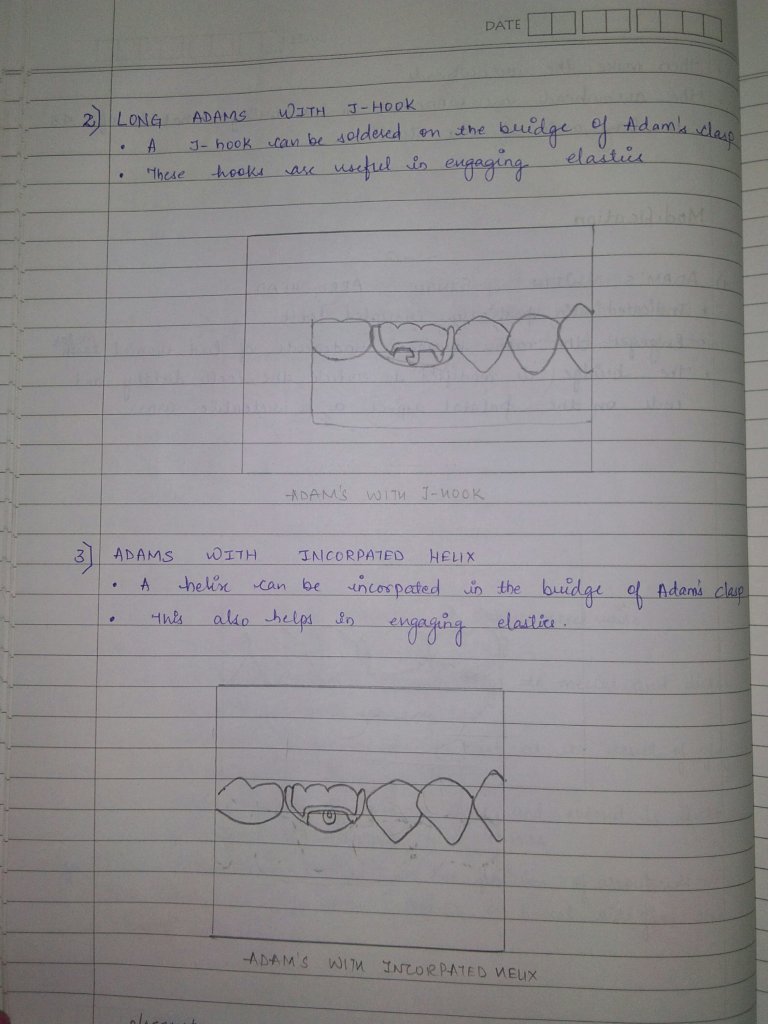 DATE
2) LONG ADAMS WITH J-HOOK
• A J-hook can be soldered on the bridge of Adam's clasp
• These hooks are useful in engaging elastics
ADAM'S WITH J-HOOK
3) ADAMS WITH INCORPATED HELIX
• A helix can be incorpated in the bridge of Adam's clasp
• This also helps in engaging elastics.
ADAM'S WITH INCORPATED HELIX